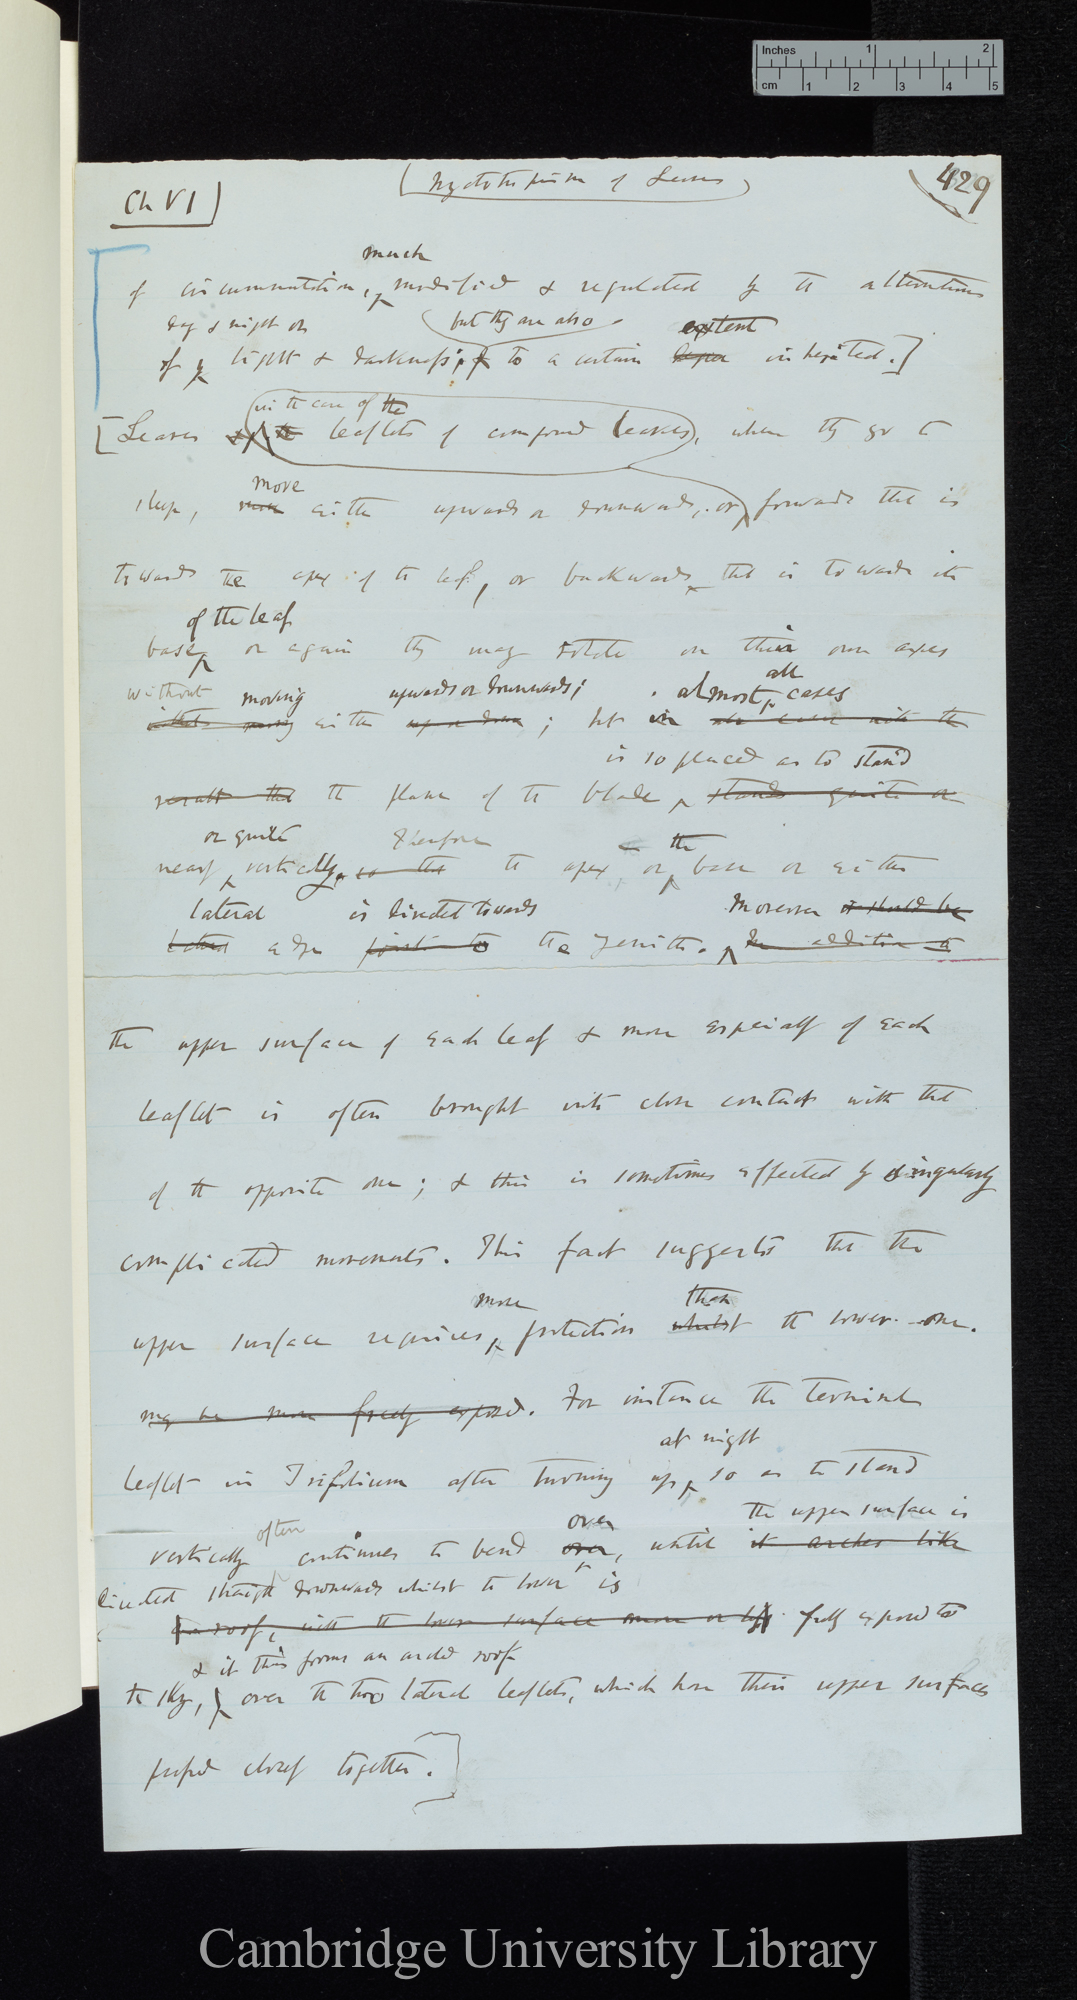 Inches 1 2
cm 1 2 3 4 5
Ch VI
Nyctotropism of Leaves
429
much
of circumnutation, modified & regulated by the alternations
day & night or
but they are also
extent
of light & darkness; to a certain degree inherited.]
in the case of the
[Leaves leaflets of compound leaves, when they go to
move
sleep, either upwards or downwards, or forwards that is
towards the apex of the leaf, or backwards that is towards its
of the leaf
base, or again they may rotate on their own axes
without moving upwards or downwards; almost all cases
either moving either up or down; but in all cases with the
is so placed as to stand
result that the plane of the blade stands quite or
or quite therefore the
nearly vertically, so that the apex, or base or either
lateral is directed towards Moreover it should be
lateral edge points to the zenith. In addition to
the upper surface of each leaf & more especially of each
leaflet is often brought into close contact with that
of the opposite one; & this is sometimes effected by singularly
complicated movements. This fact suggests that the
more than
upper surface requires protection whilst the lower one.
may be more freely exposed. For instance the terminal
at night
leaflet in Trifolium after turning up, so as to stand
often over the upper surface is
vertically continues to bend over, until it arches like
directed straight downwards whilst the lower is
a roof, with the lower surface more or less fully exposed to
& it thus forms an arched roof
the sky, over the two lateral leaflets, which have their upper surfaces
pressed closely together.]
Cambridge University Library